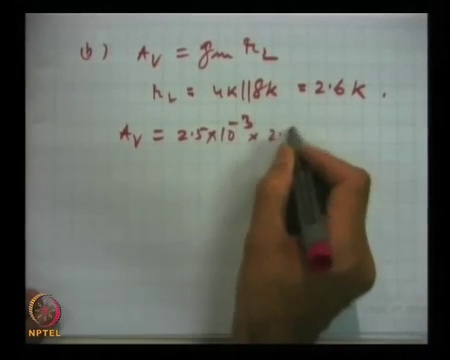 (b) Av = gm rL
rL = 4K||8K = 2.6 K.
Av = 2.5×10⁻³ × 2.
NPTEL